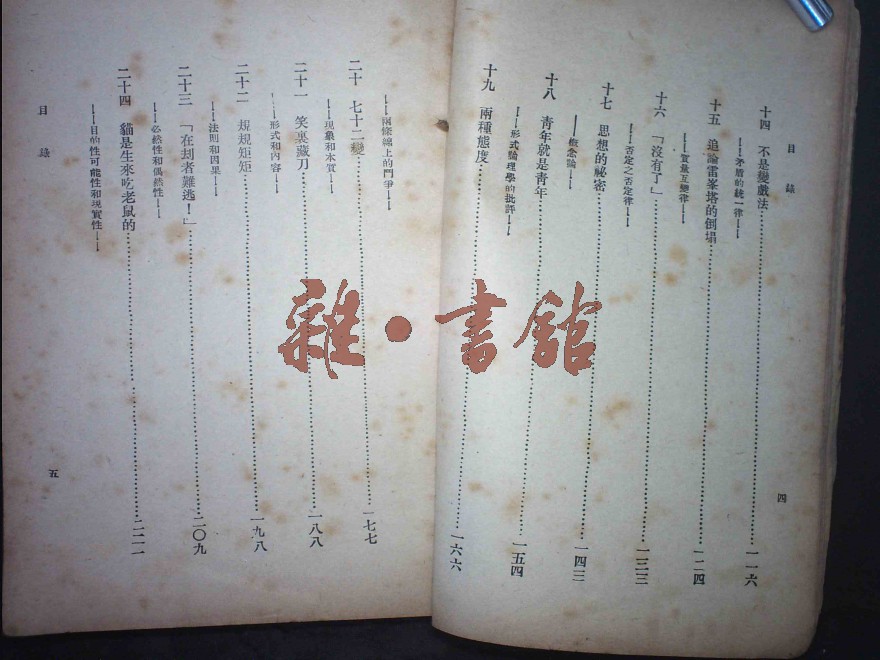 目錄
十四 不是變戲法……一一六
——矛盾的統一律——
十五 追論雷峯塔的倒塌……一二四
——質量互變律——
十六 「沒有了」……一三三
——否定之否定律——
十七 思想的祕密……一四三
——概念論——
十八 青年就是青年……一五四
——形式論理學的批評——
十九 兩種態度……一六六
四
——兩條線上的鬥爭——
二十 七十二變……一七七
——現象和本質——
二十一 笑裏藏刀……一八八
——形式和內容——
二十二 規規矩矩……一九八
——法則和因果——
二十三 「在劫者難逃！」……二〇九
——必然性和偶然性——
二十四 貓是生來吃老鼠的……二二一
——目的性可能性和現實性——
目錄
五
雜·書館